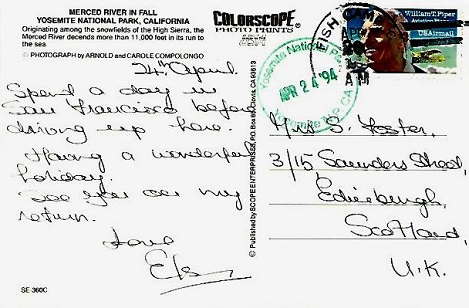 MERCED RIVER IN FALL
YOSEMITE NATIONAL PARK, CALIFORNIA
Originating among the snowfields of the High Sierra, the
Merced River decends more than 11,000 feet in its run to
the sea.
© PHOTOGRAPH by ARNOLD and CAROLE COMPOLONGO
COLORSCOPE
PHOTO PRINTS
24th April.
Spend a day in
San Francisco before
driving up here.
Having a wonderful
holiday.
See you on my
return.
Love
SE-360C
© Published by SCOPE ENTERPRISES, P.O. Box
CA 93613
Yosemite National Park
APR 24 '94
CA
William T. Piper
Aviation Pioneer
USAirmail
Mrs S. Foster,
3/15 Saunders Street,
Edinburgh,
Scotland,
U.K.